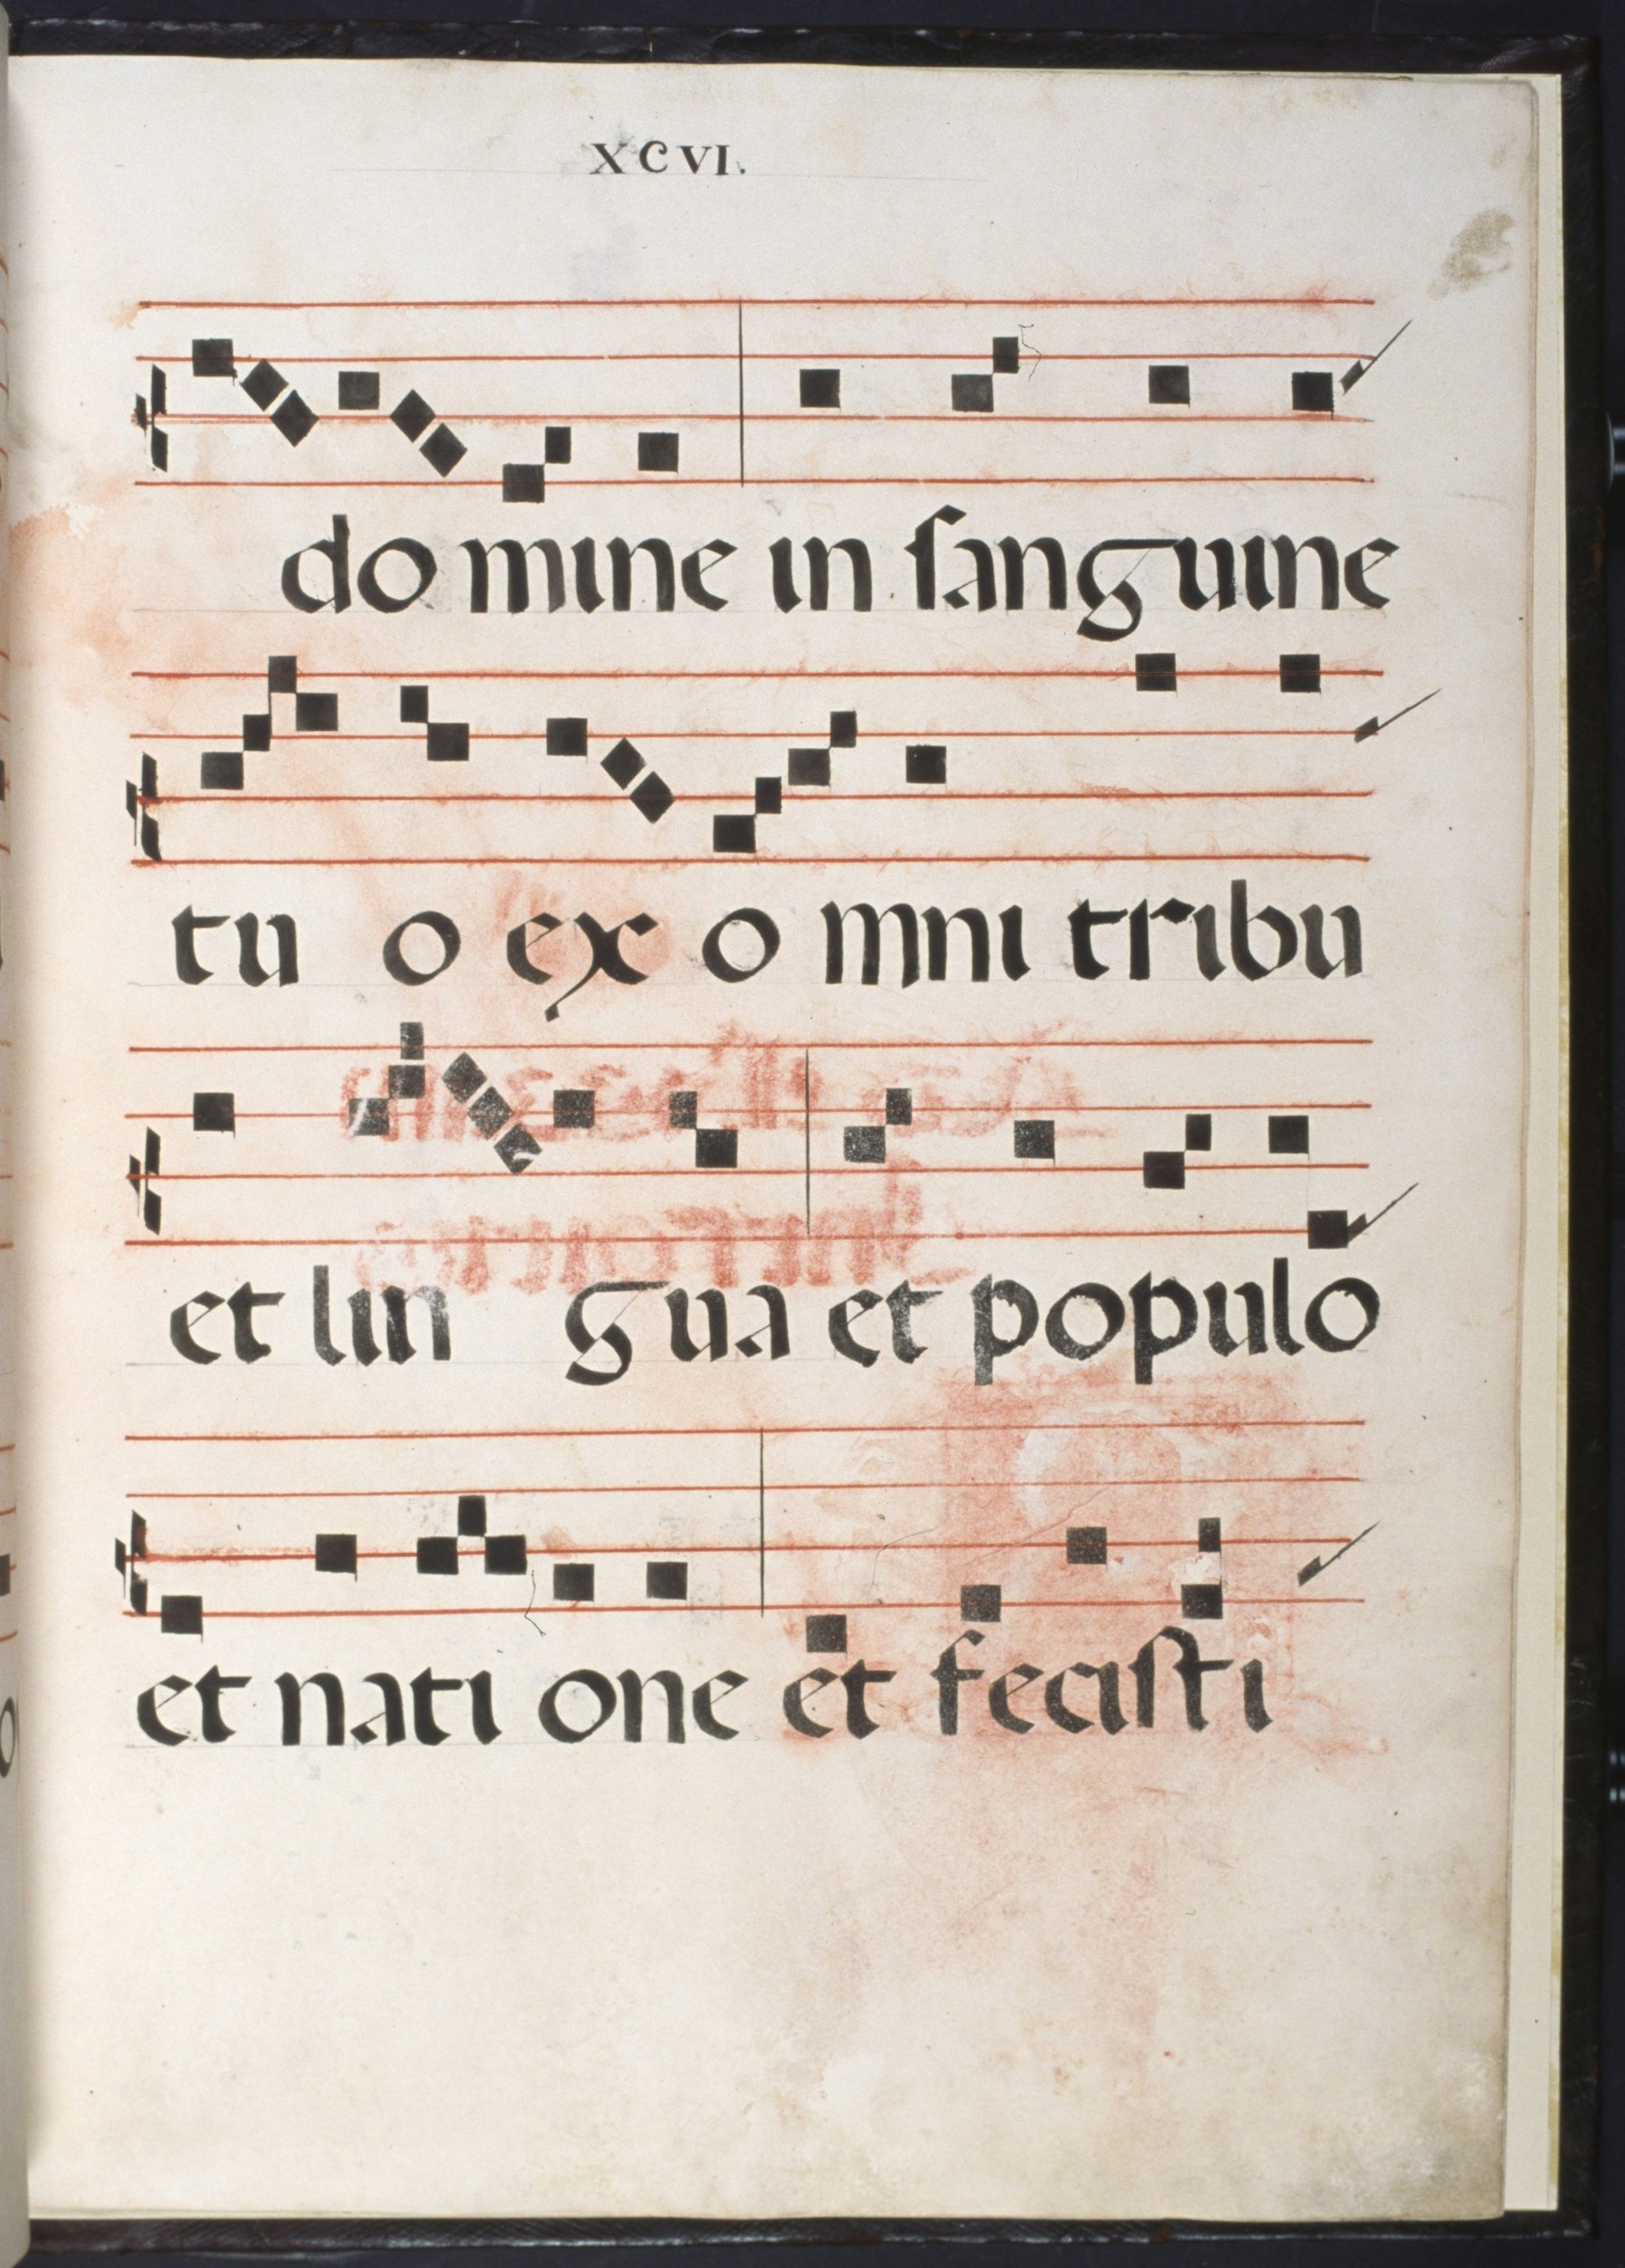 XCVI.
do mine in ſanguine
tu o ex o mni tribu
et lin gua et populo
et nati one et feciſti